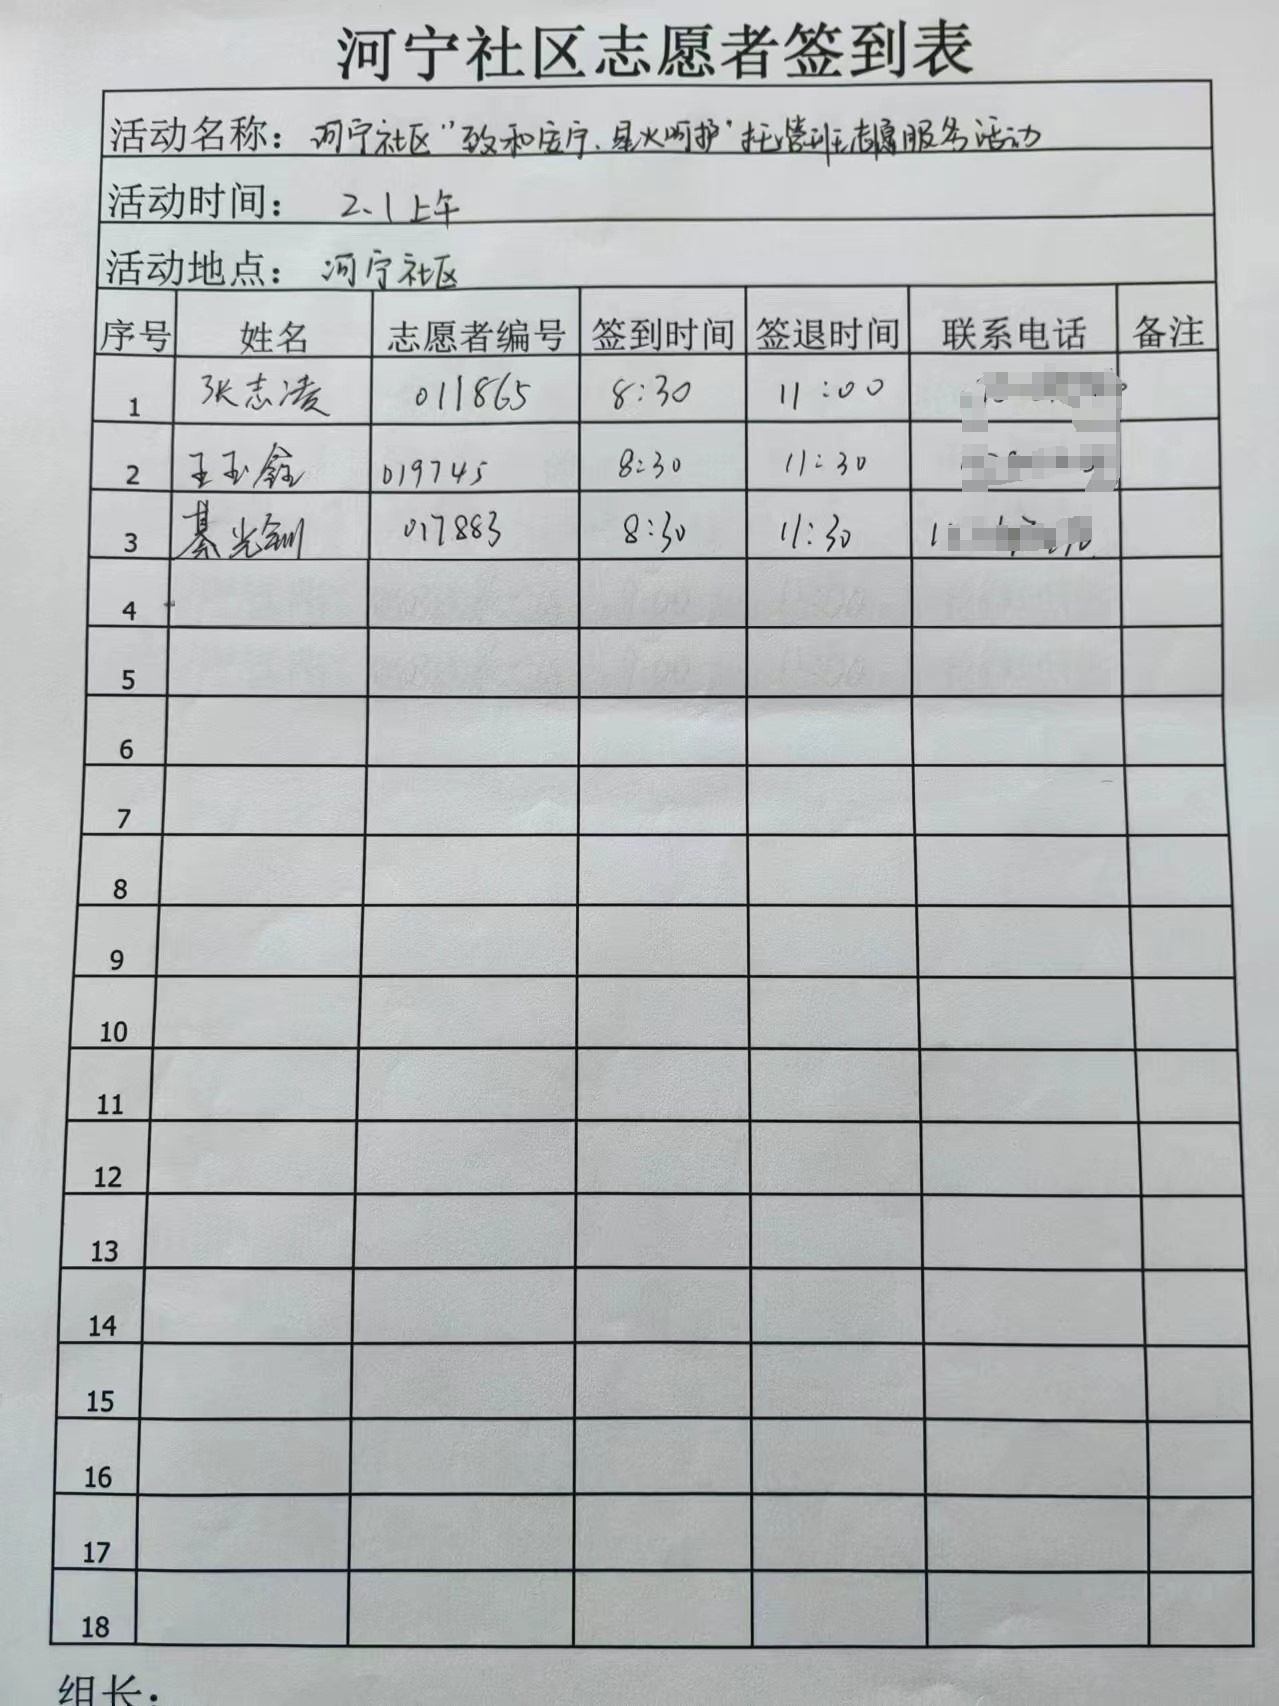 河宁社区志愿者签到表
活动名称：河宁社区“致和安宁、星火呵护”托管班志愿服务活动
活动时间：2.1上午
活动地点：河宁社区
序号 姓名 志愿者编号 签到时间 签退时间 联系电话 备注
1 张志凌 011865 8:30 11:00
2 王玉鑫 019745 8:30 11:30
3 綦光钏 017883 8:30 11:30
4
5
6
7
8
9
10
11
12
13
14
15
16
17
18
组长：